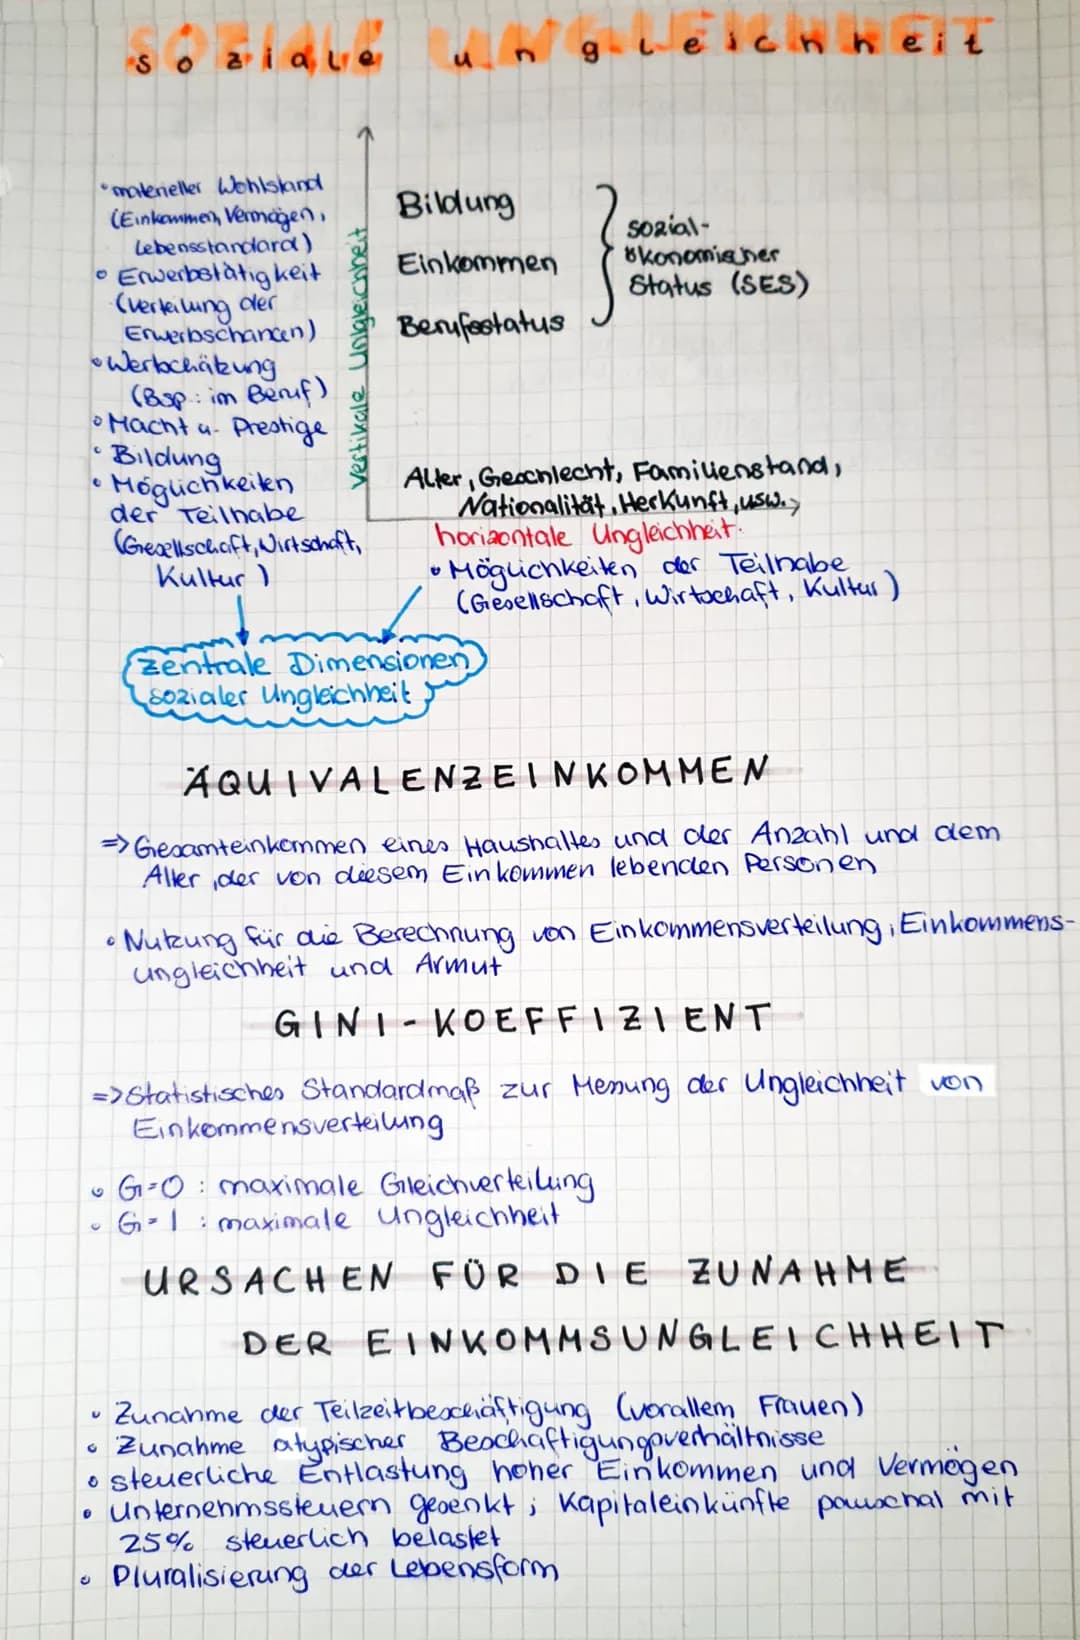 soziale ungleichheit
• materieller Wohlstand
(Einkommen, Vermögen,
Lebensstandard)
• Erwerbstätigkeit
(Verteilung der
Erwerbschancen)
• Wertschätzung
(Bsp.: im Beruf)
• Macht u. Prestige
• Bildung
• Möglichkeiten
der Teilhabe
(Gesellschaft, Wirtschaft,
Kultur)
vertikale Ungleichheit
Bildung
Einkommen
Berufsstatus
sozial-
ökonomischer
Status (SES)
Alter, Geschlecht, Familienstand,
Nationalität, Herkunft, usw.
horizontale Ungleichheit
• Möglichkeiten der Teilhabe
(Gesellschaft, Wirtschaft, Kultur)
zentrale Dimensionen
sozialer Ungleichheit
ÄQUIVALENZEINKOMMEN
=> Gesamteinkommen eines Haushaltes und der Anzahl und dem
Alter, der von diesem Einkommen lebenden Personen
• Nutzung für die Berechnung von Einkommensverteilung, Einkommens-
ungleichheit und Armut
GINI-KOEFFIZIENT
=> Statistisches Standardmaß zur Messung der Ungleichheit von
Einkommensverteilung
• G=0 : maximale Gleichverteilung
• G=1 : maximale Ungleichheit
URSACHEN FÜR DIE ZUNAHME
DER EINKOMMSUNGLEICHHEIT
• Zunahme der Teilzeitbeschäftigung (vorallem Frauen)
• Zunahme atypischer Beschäftigungsverhältnisse
• steuerliche Entlastung hoher Einkommen und Vermögen
• Unternehmssteuern gesenkt; Kapitaleinkünfte pauschal mit
25% steuerlich belastet
• Pluralisierung der Lebensform